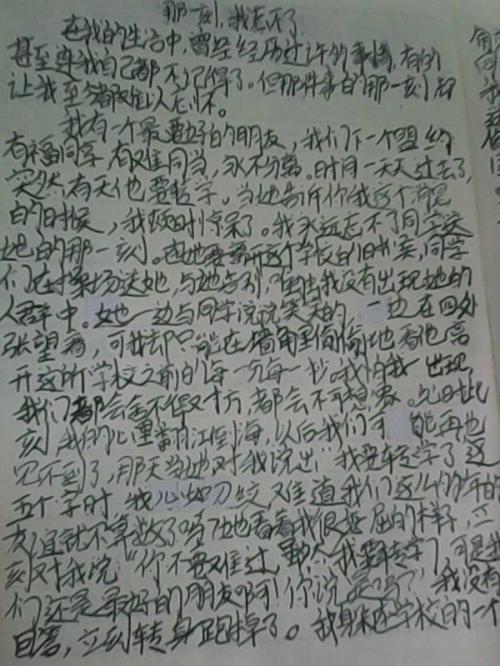 那一刻,我忘不了
在我的生活中,曾经经历过许多事情,有的
甚至连我自己都不记得了。但那件事的那一刻却
让我至今都难以忘怀。
我有一个最要好的朋友,我们下一个盟约
有福同享 有难同当,永不分离。时间一天天过去了,
突然有天他要转学。当她告诉我这个消息
的时候,我顿时惊呆了。我永远忘不了同学送
她的那一刻。在她要离开这个学校的时候,同学
们在操场送她,与她告别,唯独我没有出现她的
人群中。她一边与同学说说笑笑的,一边在四处
张望着,可我却只能在墙角里偷偷地看他离
开这所学校之前的每一分每一秒。我怕我一出现,
我们都会舍不得对方,都会不可想象。此时此
刻 我的心里翻江倒海,以后我们可能再也
见不到了,那天当她对我说出“我要转学了”这
五个字时 我心如刀绞 难道我们这么多年的
友谊就不算数了吗?她看着我很委屈的样子,立
刻对我说“你不要难过,虽然我要转学了,可是我
们还是最好的朋友啊!你说是吗?”我没有
回答,立刻转身跑掉了。我躲在学校的一个